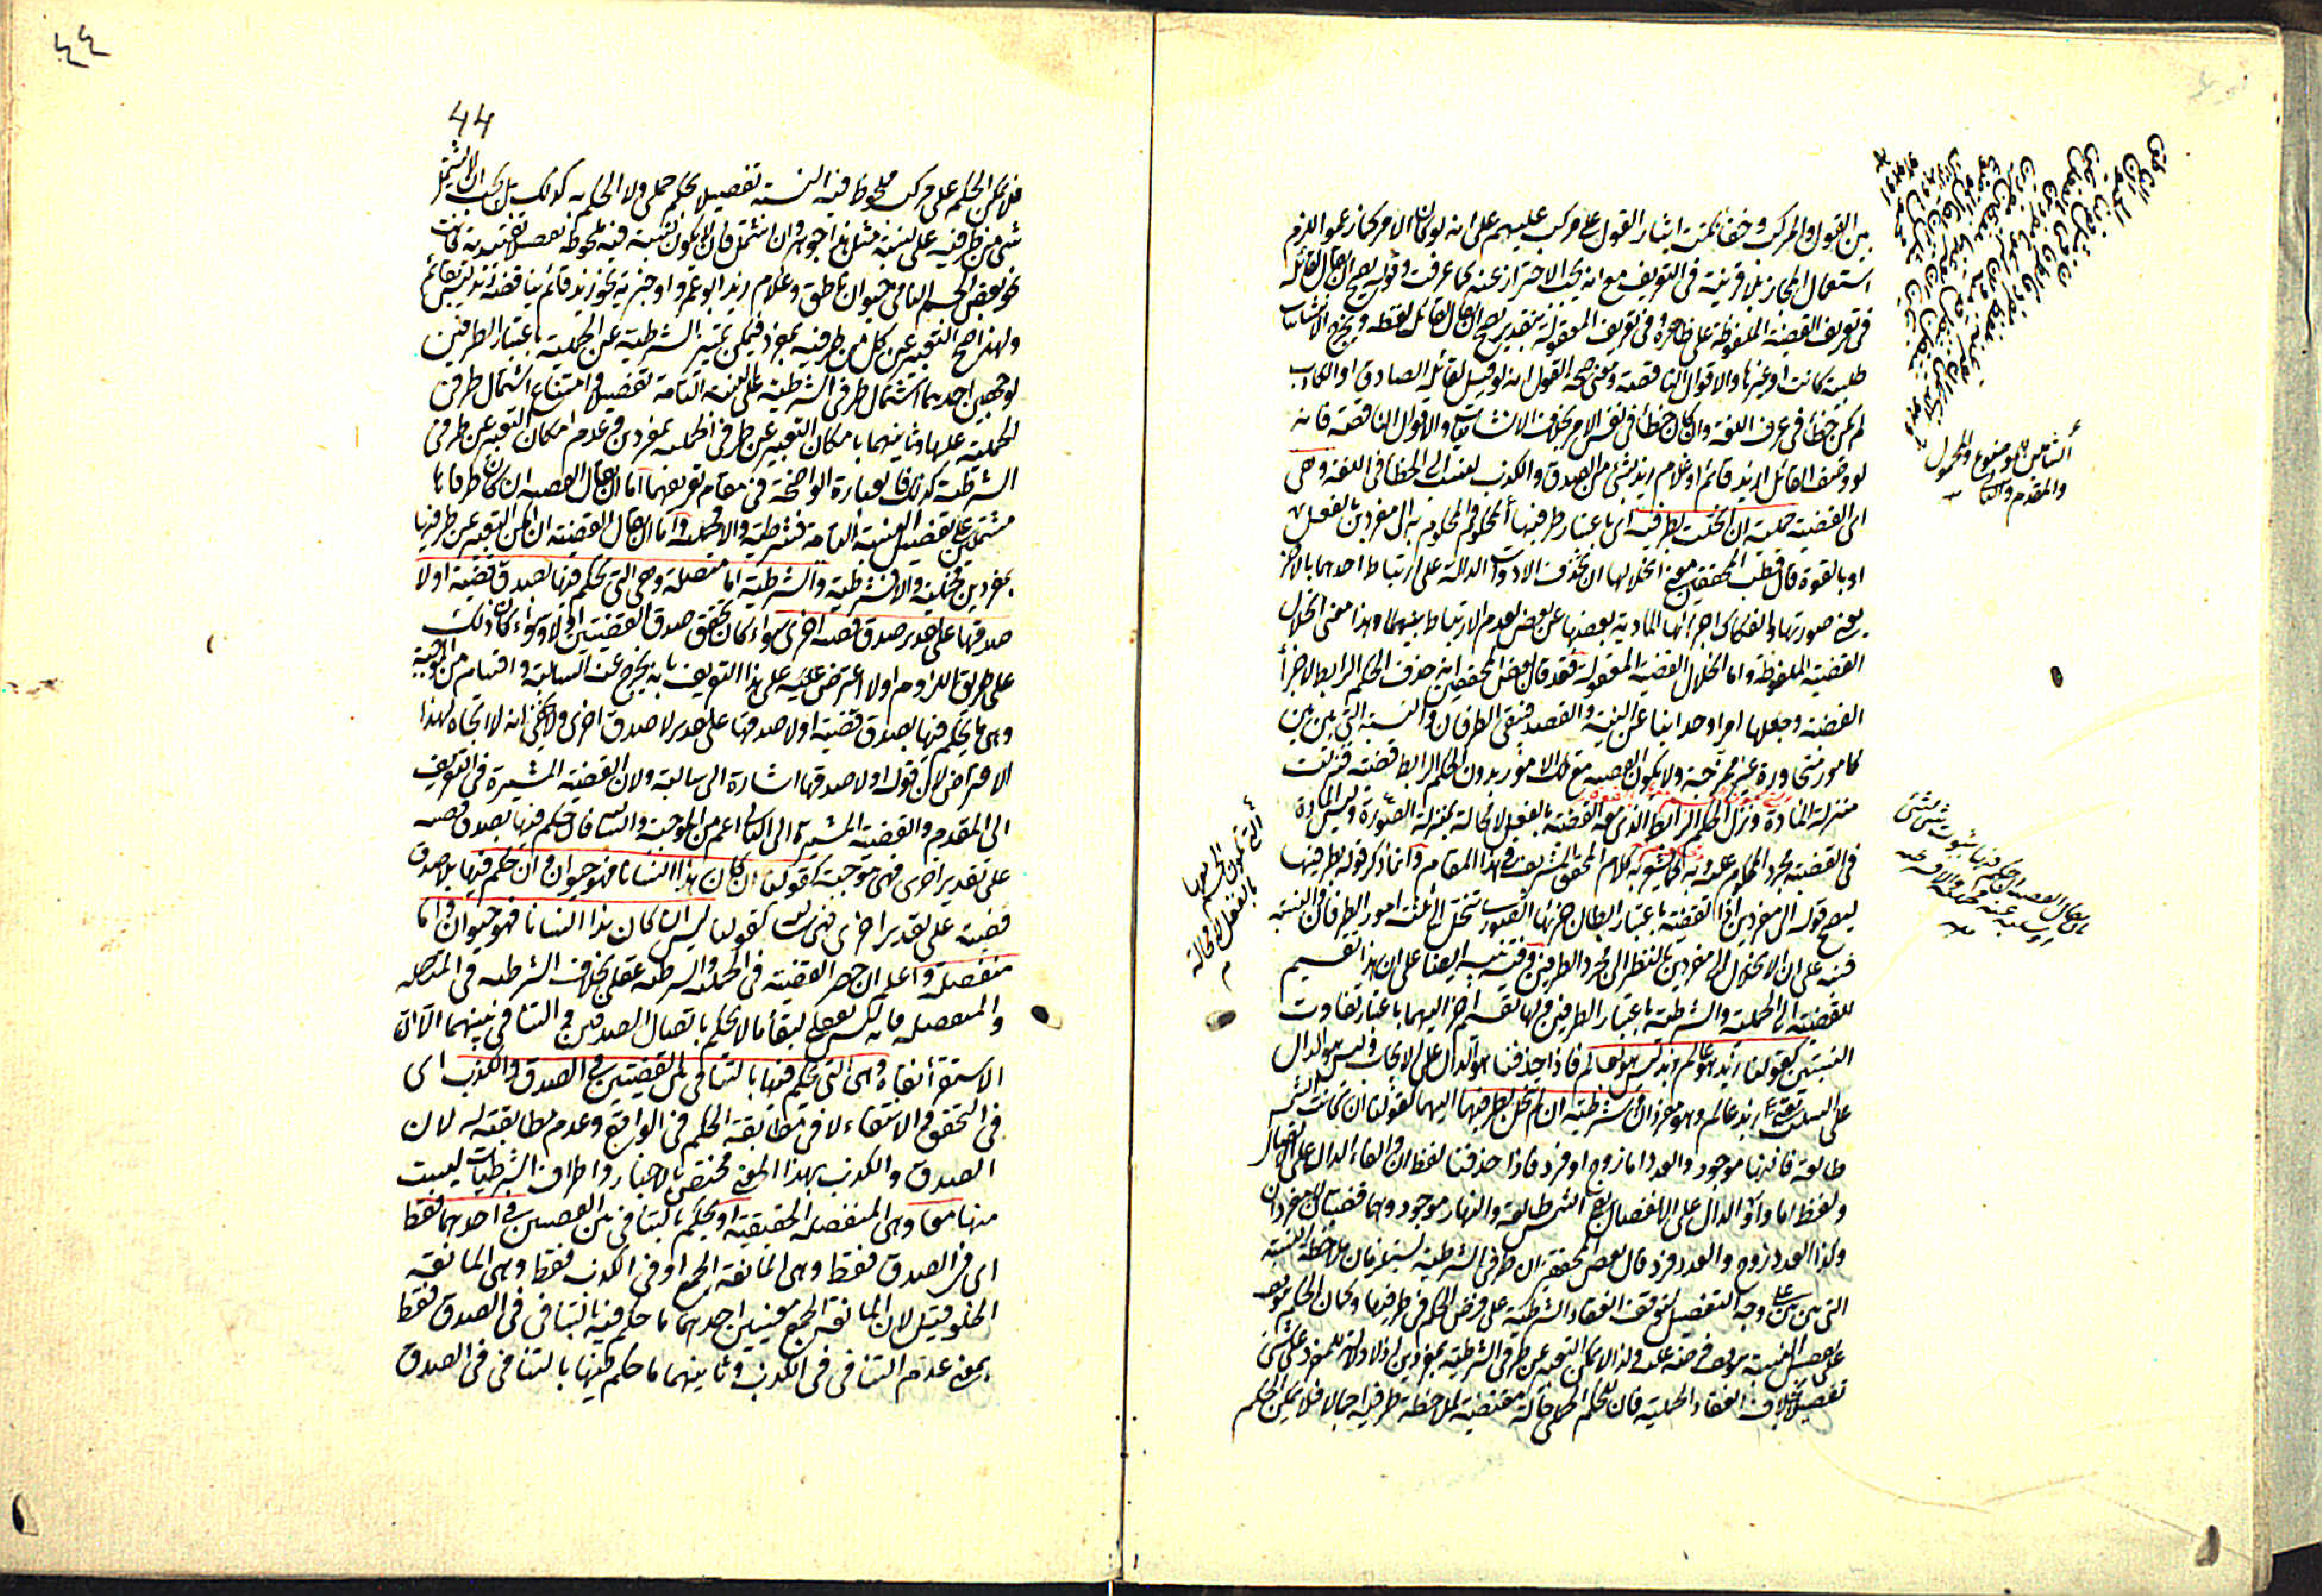 من القول والمركب وخفا نكتت ايثار القول على مركب عليهم على انه لو كان الامر كما زعموا لزم
استعمال المجاز بلا قرينة فى التعريف مع انه يجب الاحتراز عنه كما عرفت وقوله يصح ان يقال لقائله
فى تعريف القضية الملفوظة على ظاهره وفى تعريف المعقولة بتقدير يصح ان يقال لقائل لفظه ويخرج الانشائيات
طلبية كانت او غيرها والاقوال الناقصة ومعنى صحة القول انه لو قيل لقائله الصادق او الكاذب
لم يكن خطأ فى عرف اللغة وان كان خطأ فى نفس الامر بخلاف الانشائيات والاقوال الناقصة فانه
لو وصف القائل ازيد قائم او غلام زيد بشئ من الصدق والكذب لنسب الى الخطأ فى اللغة وهى
اى القضية حملية ان انحلت بطرفيه اى باعتبار طرفيها المحكوم والمحكوم به الى مفردين بالفعل
او بالقوة قال قطب المحققين معنى انحلالها ان نحذف الادوات الدالة على ارتباط احدهما بالآخر
يعنى صورتها وانفكاك اجزائها المادية بعضها عن بعض لعدم الارتباط بينهما وهذا معنى انحلال
القضية الملفوظة واما انحلال القضية المعقولة فقد قال بعض المحققين انه حذف الحكم الرابط لاجزاء
القضية وجعلها امرا وحدانيا عن النية والقصد فبقى الطرفان والنسبة التى بين بين
كامور متجاورة غير ممتزجة ولا يكون القضية مع تلك الامور بدون الحكم الرابط قضية فنزلت
منزلة المادة ونزل الحكم الرابط الذى معه القضية بالفعل لا محالة بمنزلة الصورة وليس المادة
فى القضية مجرد المحكوم عليه وبه كما يشعر به كلام المحقق الشريف فى هذا المقام وانما ذكر قوله بطرفيها
ليصح قوله الى مفردين اذ القضية باعتبار ابطال جزئها الصورى تنحل الى ثلث امور الطرفان والنسبة
فنبه على ان الانحلال الى مفردين بالنظر الى مجرد الطرفين وفيه تنبيه ايضا على ان هذا تقسيم
للقضية الى الحملية والشرطية باعتبار الطرفين ولها تقسيم آخر اليهما باعتبار تفاوت
النسبتين كقولنا زيد هو عالم زيد ليس هو بعالم فاذا حذفنا هو الدال على الايجاب وليس هو الدال
على السلب بقى زيد عالم وهو مفردان وشرطية ان لم تنحل بطرفيها اليهما كقولنا ان كانت الشمس
طالعة فالنهار موجود والعدد اما زوج او فرد فاذا حذفنا لفظ ان والفاء الدال على الاتصال
ولفظ اما واو الدال على الانفصال بقى الشمس طالعة والنهار موجود وهما قضيتان لا مفردان
وكذا العدد زوج والعدد فرد قال بعض المحققين ان طرفى الشرطية يستلزمان ملاحظة النسبة
التى بين بين على وجه التفصيل لتوقف انعقاد الشرطية على فرض الحكم فى طرفيها وكان الحكم
تفصيلا بخلاف انعقاد الحملية فان للحكم الحملى حالة مقتضية لملاحظة طرفيه اجمالا فلا يمكن الحكم
الشامل للموضوع والمحمول
والمقدم والتالى
التى تكون القضية معها
بالفعل لا محالة
٤٤
44
فلا يمكن الحكم على مركب ملحوظ فيه النسبة تفصيلا بحكم حملى ولا الحكم به كذلك بل يجب ان لا يشتمل
شئ من طرفيه على نسبة مثل هذا جوهر وان اشتمل فان لا يكون النسبة فيه ملحوظة تفصيلا تقييدية كانت
نحو بعض الجسم النامى حيوان ناطق وغلام زيد ابو عمرو او خبرية نحو زيد قائم يناقضه زيد ليس بقائم
ولهذا صح التعبير عن كل من طرفيه بمفرد فيمكن تمييز الشرطية عن الحملية باعتبار الطرفين
لوجهين احدهما اشتمال طرفى الشرطية على النسبة التامة تفصيلا وامتناع اشتمال طرفى
الحملية عليها وثانيهما بامكان التعبير عن طرفى الحملية بمفردين وعدم امكان التعبير عن طرفى
الشرطية كذلك فالعبارة الواضحة فى مقام تعريفهما اما ان يقال القضية ان كان طرفاها
مشتملين على تفصيل النسبة التامة فشرطية والا فحملية واما ان يقال القضية ان امكن التعبير عن طرفيها
بمفردين فحملية والا فشرطية والشرطية اما متصلة وهى التى يحكم فيها بصدق قضية او لا
صدقها على تقدير صدق قضية اخرى سواء كان يحقق صدق القضيتين او لا وسواء كان ذلك
على طريق اللزوم او لا اعترض عليه على هذا التعريف بانه يخرج عنه السالبة واقسام من الموجبة
وهى ما يحكم فيها بصدق قضية او لا صدقها على تقدير لا صدق اخرى ولا يخفى انه لا اتجاه لهذا
الاعتراض لان قوله او لا صدقها اشارة الى سالبة ولان القضية المشيرة فى التعريف
الى المقدم والقضية المشيرة الى التالى اعم من الموجبة والسالبة فان حكم فيها بصدق قضية
على تقدير اخرى فهى موجبة كقولنا ان كان هذا انسانا فهو حيوان وان حكم فيها بلا صدق
قضية على تقدير اخرى فهى سالبة كقولنا ليس ان كان هذا انسانا فهو حيوان واما
منفصلة واعلم ان حصر القضية فى الحملية والشرطية عقلى بخلاف الشرطية فى المتصلة
والمنفصلة فانه ليس بعقلى لبقاء ما لا يحكم باتصال الصدقين والتنافى بينهما الا ان
الاستقراء نفاه وهى التى يحكم فيها بالتنافى بين القضيتين فى الصدق والكذب اى
فى التحقق والانتفاء لا فى مطابقة الحكم فى الواقع وعدم مطابقته له لان
الصدق والكذب بهذا المعنى مختص بالاخبار واطراف الشرطيات ليست
منها معا وهى المنفصلة الحقيقية او يحكم بالتنافى بين القضيتين فى احدهما فقط
اى فى الصدق فقط وهى المانعة الجمع او فى الكذب فقط وهى المانعة
الخلو قيل لان المانعة الجمع معنيين احدهما ما حكم فيه بالتنافى فى الصدق فقط
بمعنى عدم التنافى فى الكذب وثانيهما ما حكم فيها بالتنافى فى الصدق